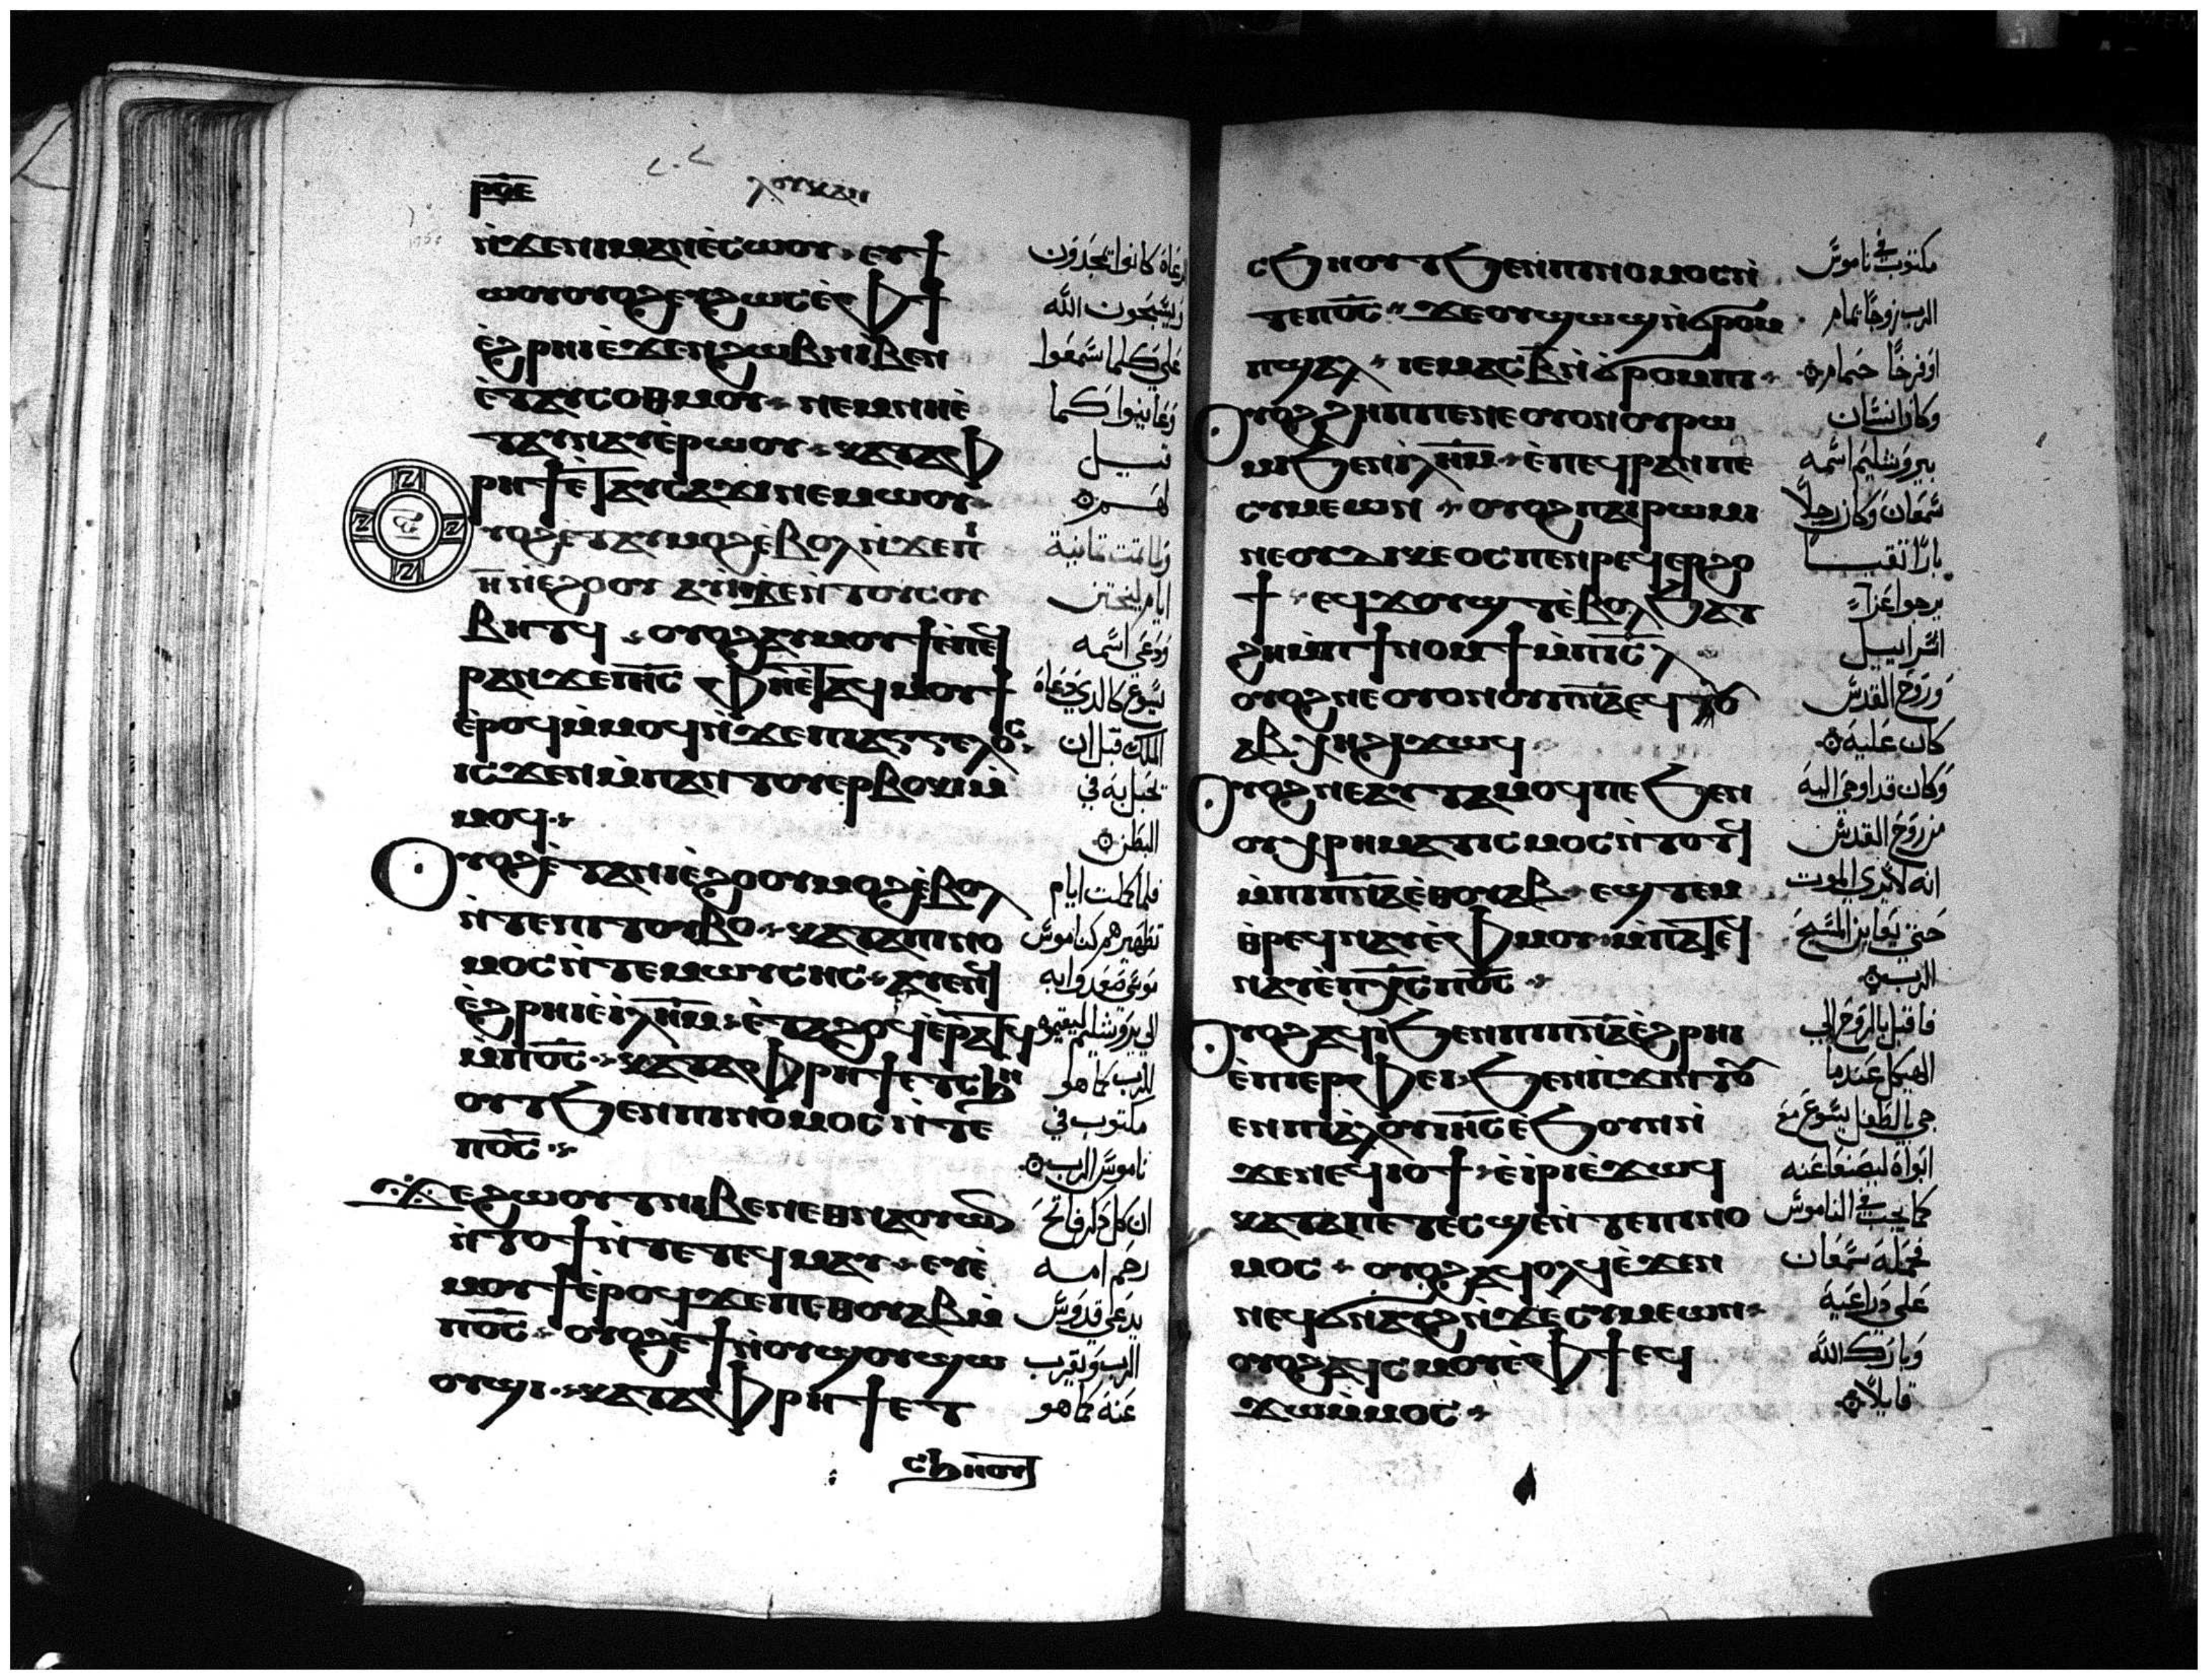 ⲣϥⲉ ⲗⲟⲩⲕⲁⲛ
ⲛ̀ϫⲉⲛⲓⲙⲁⲛⲉ̀ⲥⲱⲟⲩ ⲉⲩϯ
ⲱⲟⲩⲟⲩⲟϩⲉⲩϩⲱⲥⲉ̀ⲫϯ
ⲉ̀ϩⲣⲏⲓⲉ̀ϫⲉⲛϩⲱⲃⲛⲓⲃⲉⲛ
ⲉ̀ⲧⲁⲩⲥⲟⲑⲙⲟⲩ ⲛⲉⲙⲛⲏⲉ̀
ⲧⲁⲩⲛⲁⲩⲉ̀ⲣⲱⲟⲩ ⲕⲁⲧⲁⲫ
ⲣⲏϯⲉ̀ⲧⲁⲩⲥⲁϫⲓⲛⲉⲙⲱⲟⲩ
ⲩⲟϩⲉ̀ⲧⲁⲩⲙⲟϩⲉ̀ⲃⲟⲗⲛ̀ϫⲉⲡⲓ
ⲏ̅ⲛ̀ⲉϩⲟⲟⲩ
ⲃⲏⲧϥ ⲟⲩⲟϩⲁⲩⲙⲟⲩϯⲉ̀ⲡⲉϥ
ⲣⲁⲛϫⲉⲓⲏ̅ⲥ ⲫⲏⲉ̀ⲧⲁϥⲙⲟⲩϯ
ⲉ̀ⲣⲟϥⲙ̀ⲙⲟϥⲛ̀ϫⲉⲡⲓⲁⲅⲅⲉⲗⲟⲥ
ⲓⲥϫⲉⲛⲙ̀ⲡⲁⲛⲧⲟⲩⲉⲣⲃⲟⲕⲓⲙ̀
ⲙⲟϥ
ⲟⲩⲟϩⲉ̀ⲧⲁⲛⲓⲉ̀ϩⲟⲟⲩⲙⲟϩⲉ̀ⲃⲟⲗ
ⲛ̀ⲧⲉⲡⲓⲧⲟⲩⲃⲟ ⲕⲁⲧⲁⲡⲓⲛⲟ
ⲙⲟⲥⲛ̀ⲧⲉⲙⲱⲩⲥⲏⲥ ⲁⲩⲉⲛϥ
ⲉ̀ϩⲣⲏⲓⲉ̀ⲓⲗ̅ⲏ̅ⲙ ⲉ̀ⲧⲁϩⲟϥⲉ̀ⲣⲁⲧϥ
ⲙ̀ⲡⲟ̅ⲥ ⲕⲁⲧⲁⲫⲣⲏϯⲉⲧⲥϧⲏ
ⲟⲩⲧϧⲉⲛⲡⲓⲛⲟⲙⲟⲥⲛ̀ⲧⲉ
ⲡⲟ̅ⲥ
ϫⲉϩⲱⲟⲩⲧⲛⲓⲃⲉⲛⲉⲑⲛⲁⲟⲩⲱⲛ
ⲛ̀ⲧⲟϯⲛ̀ⲧⲉⲧⲉϥⲙⲁⲩ ⲉⲩⲉ̀
ⲙⲟⲩϯⲉ̀ⲣⲟϥϫⲉⲡⲉⲑⲟⲩⲁⲃⲙ̀
ⲡⲟ̅ⲥ ⲟⲩⲟϩⲉ̀ϯⲛ̀ⲟⲩϣⲟⲩϣⲱ
ⲟⲩϣⲓ ⲕⲁⲧⲁⲫⲣⲏϯⲉⲧ
ⲥϧⲏⲟⲩⲧ
رعاة كانوا يمجدون
ويسبحون الله
على كلما سمعوا
وعاينوا كما
قيل
لهم
ولما تمت ثمانية
ايام ليختتن
ودعى اسمه
يسوع كالذي دعاه
الملك قبل ان
تحبل به في
البطن
فلما كملت ايام
تطهيرهم كناموس
موسى صعدوا به
الي يروشليم ليقيموه
للرب كما هو
مكتوب في
ناموس الرب
ان كل ذكر فاتح
رحم امه
يدعى قدوس
الرب ويقرب
عنه كما هو
ⲥϧⲏⲟⲩⲧϧⲉⲛⲡⲓⲛⲟⲙⲟⲥⲛ̀
ⲧⲉⲡⲟ̅ⲥ ϫⲉⲟⲩϣⲱϣⲛ̀ϭⲣⲟⲙ
ⲡϣⲁⲗ ⲓⲉⲙⲁⲥⲃ̅ⲛ̀ϭⲣⲟⲙⲡⲓ
ⲟⲩⲟϩϩⲏⲡⲡⲉⲛⲉⲟⲩⲟⲛⲟⲩⲣⲱ
ⲙⲓϧⲉⲛⲓⲗ̅ⲏ̅ⲙ ⲉ̀ⲡⲉϥⲣⲁⲛⲡⲉ
ⲥⲩⲙⲉⲱⲛ ⲟⲩⲟϩⲡⲁⲓⲣⲱⲙⲓ
ⲛⲉⲟⲩⲇⲓⲕⲉⲟⲥⲡⲉⲛⲣⲉϥⲉⲣϩⲟ
ϯ ⲉϥϫⲟⲩϣⲧⲉ̀ⲃⲟⲗϧⲁⲧ
ϩⲏⲙ̀ⲡⲓϯⲛⲟⲙϯⲙ̀ⲡⲓⲥ̅ⲗ
ⲟⲩⲟϩⲛⲉⲟⲩⲟⲛⲟⲩⲡⲛ̅ⲁ̅ⲉϥⲧⲟⲩ
ⲁⲃⲭⲏϩⲓϫⲱϥ
ⲟⲩⲟϩⲛⲉⲁⲩⲧⲁⲙⲟϥⲡⲉϧⲉⲛ
ⲟⲩⲭⲣⲏⲙⲁⲧⲓⲥⲙⲟⲥⲛ̀ⲧⲟⲧϥ
ⲙ̀ⲡⲓⲡⲛ̅ⲁ̅ⲉⲑⲟⲩⲁⲃ ⲉϣⲧⲉⲙ
ⲑⲣⲉϥⲛⲁⲩⲉ̀ⲫⲙⲟⲩ ⲙ̀ⲡⲁⲧⲉϥ
ⲛⲁⲩⲉ̀ⲡⲭ̅ⲥⲡⲟ̅ⲥ
ⲟⲩⲟϩⲁϥⲓ̀ϧⲉⲛⲡⲓⲡⲛ̅ⲁ̅ⲉ̀ϩⲣⲏⲓ
ⲉ̀ⲡⲓⲉⲣⲫⲉⲓ ϧⲉⲛⲡ̀ϫⲓⲛⲧⲟⲩ
ⲉⲛⲡⲓⲁ̀ⲗⲟⲩⲓⲏ̅ⲥⲉ̀ϧⲟⲩⲛⲛ̀
ϫⲉⲛⲉϥⲓⲟϯ ⲉ̀ⲓ̀ⲣⲓⲉ̀ϫⲱϥ
ⲕⲁⲧⲁⲡⲉⲧⲉⲥϣⲉⲛ̀ⲧⲉⲡⲓⲛⲟ
ⲙⲟⲥ ⲟⲩⲟϩⲁϥⲟⲗϥⲉ̀ϫⲉⲛ
ⲛⲉϥϭⲛⲁⲩϩⲛ̀ϫⲉⲥⲩⲙⲉⲱⲛ
ⲟⲩⲟϩⲁϥⲥⲙⲟⲩⲉ̀ⲫϯⲉϥ
ϫⲱⲙ̀ⲙⲟⲥ
مكتوب في ناموس
الرب زوجا يمام
او فرخا حمام
وكان انسان
بيروشليم اسمه
سمعان وكان رجلا
بارا تقيا
يرجوا عزآء
اسراييل
وروح القدس
كان عليه
وكان قد اوحى اليه
من روح القدس
انه لا يرى الموت
حتى يعاين المسيح
الرب
فاقبل بالروح الي
الهيكل عندما
جي بالطفل يسوع مع
ابواه ليصنعا عنه
كما يجب في الناموس
فحمله سمعان
على ذراعيه
وبارك الله
قايلا